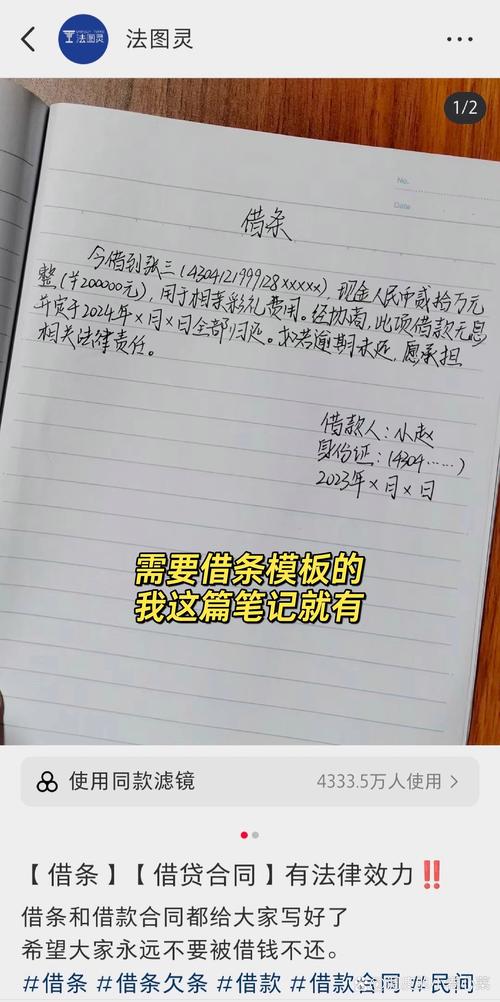 法图灵
法图灵
1/2
No.
Date
借条
今借到张三(4304121999128xxxxx),现金人民币贰拾万元
整(¥200000元),用于相亲彩礼费用。经协商,此项借款无息
并定于2024年×月×日全部归还。如若逾期未还,愿承担
相关法律责任。
借款人:小赵
身份证:(4304……)
2023年×月×日
需要借条模板的
我这篇笔记就有
使用同款滤镜
4333.5万人使用
【借条】【借贷合同】有法律效力‼️
借条和借款合同都给大家写好了
希望大家永远不要被借钱不还。
#借条 #借条欠条 #借款 #借款合同 #民间